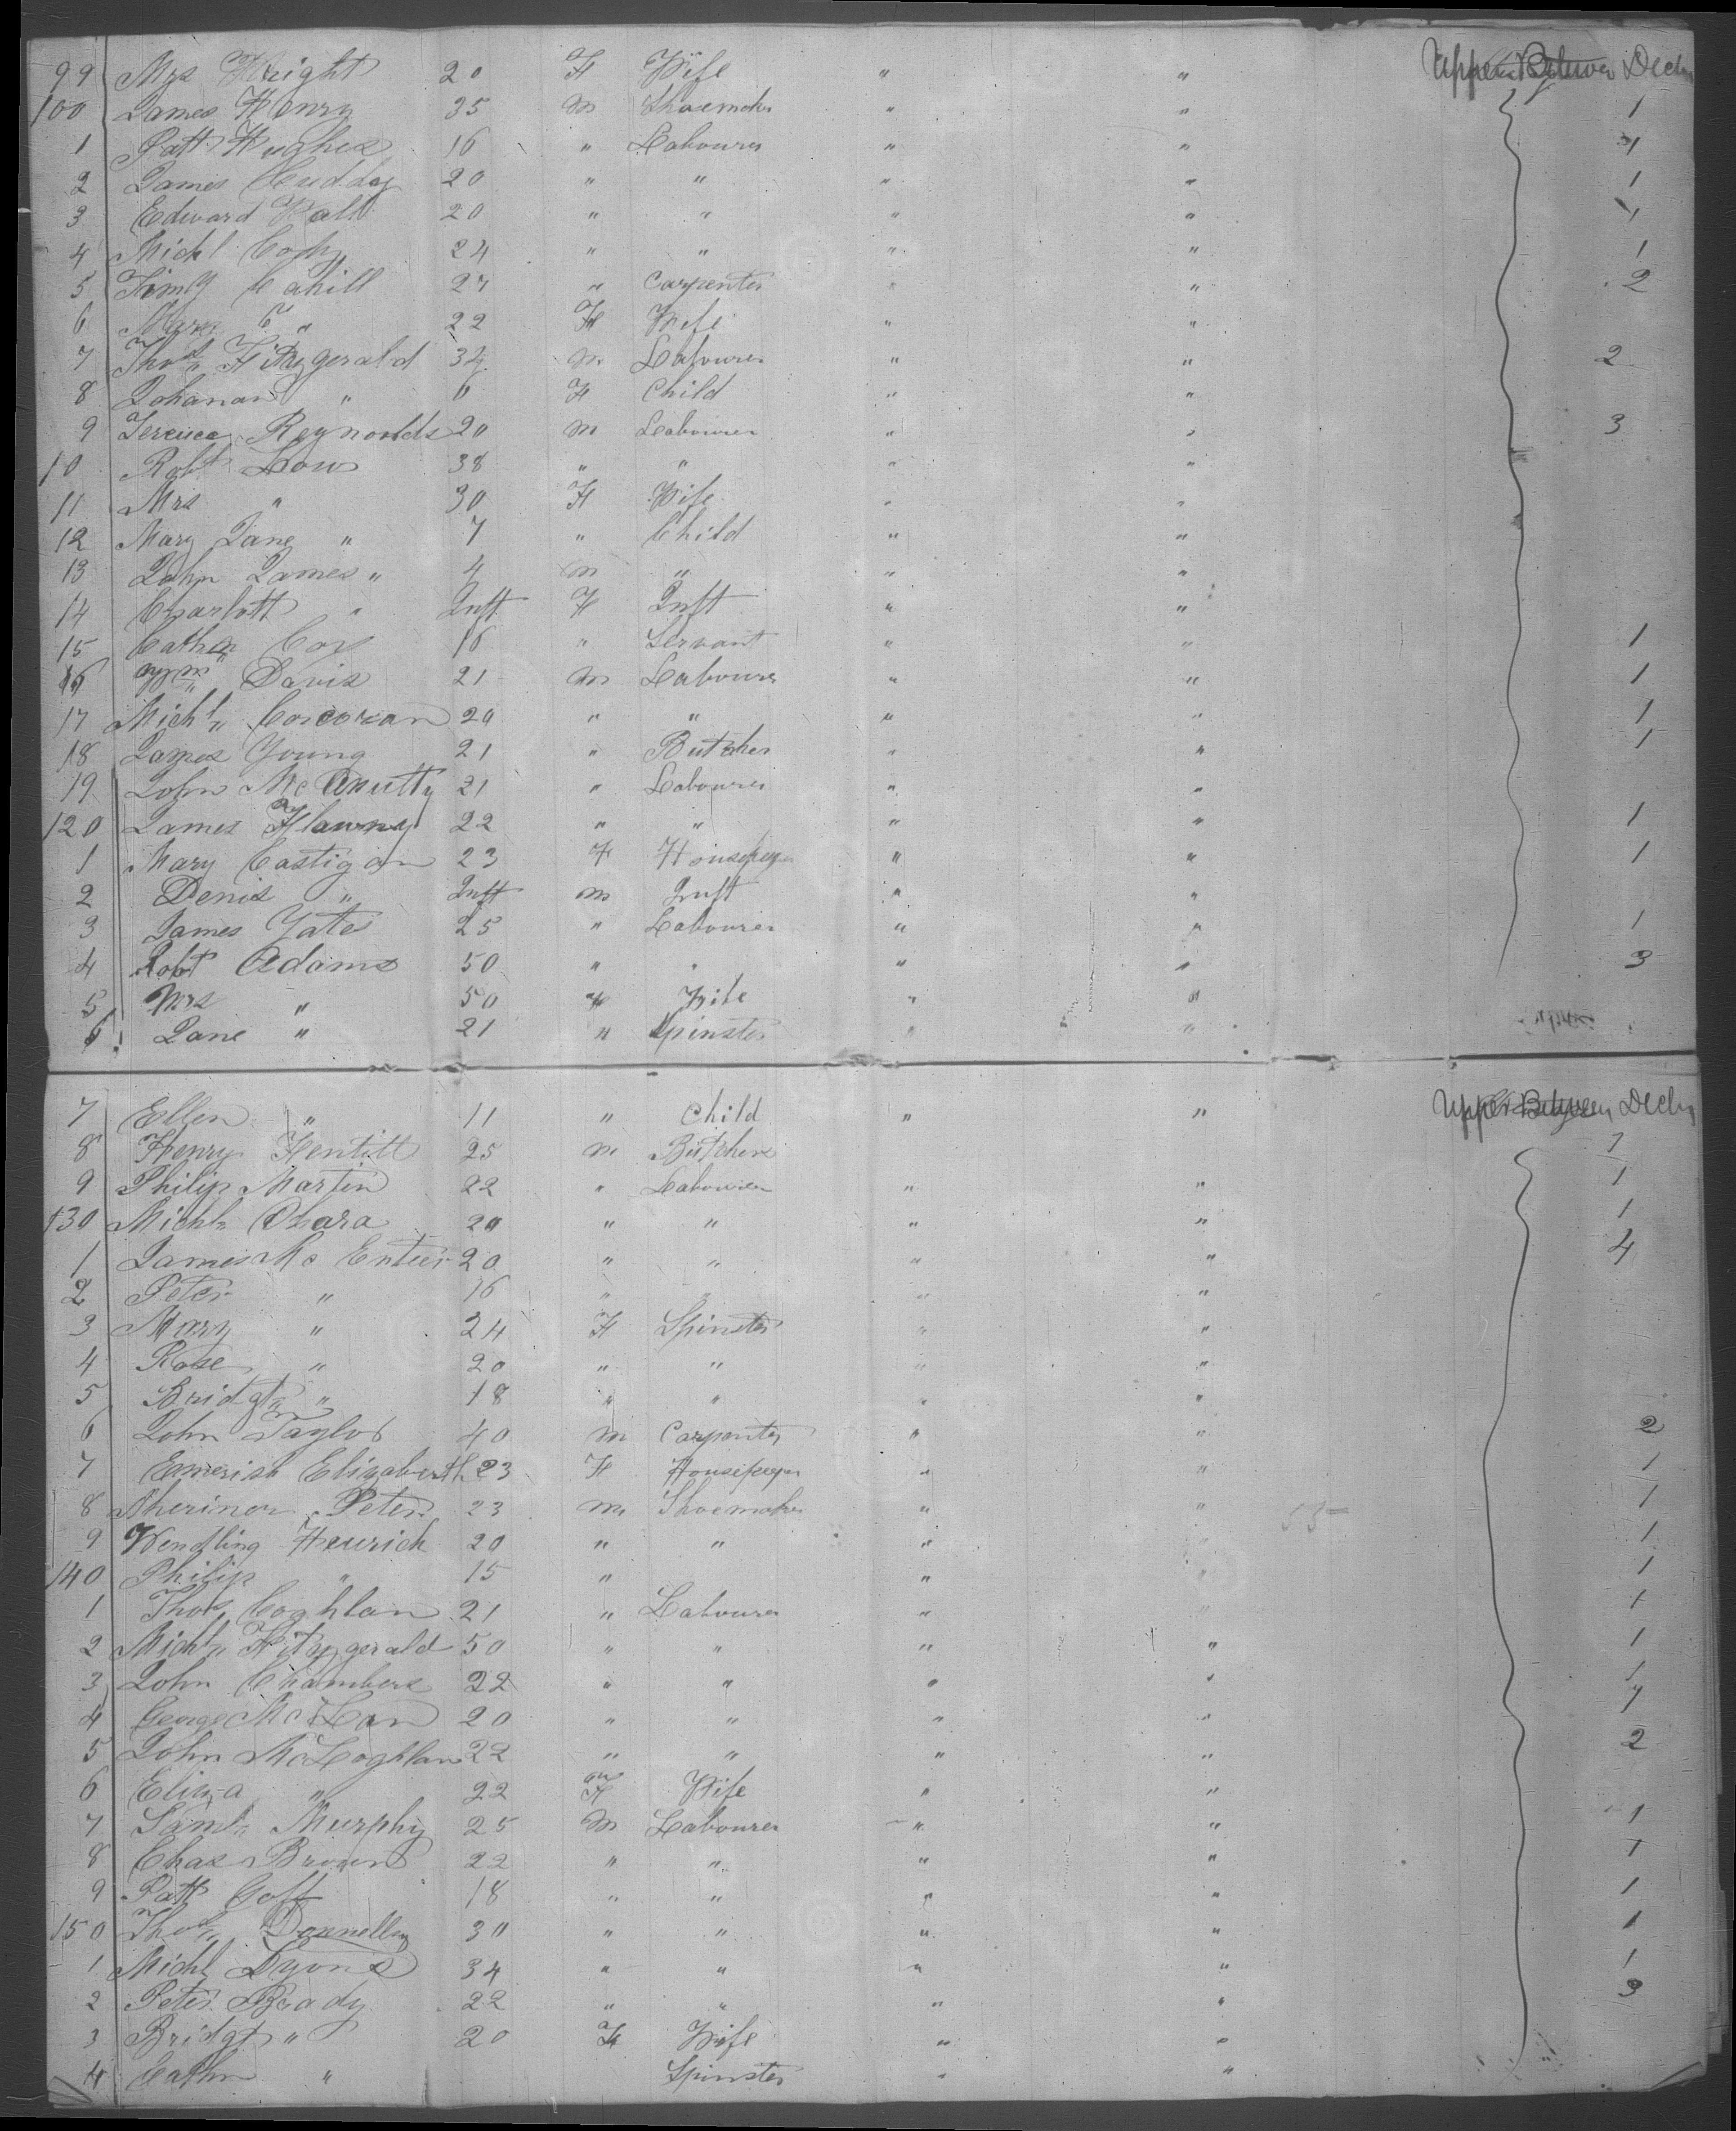 99 Mrs Wright 20 F Wife " " Upper Between Decks
100 James Henry 35 m Shoemaker " " 1
1 Patt Hughes 16 " Labourer " " 1
2 James Cuddy 20 " " " " 1
3 Edward Ball 20 " " " " 1
4 Michl 24 " " " " 1
5 Timy Cahill 27 " Carpenter " " 2
6 Mary C " 22 F Wife " "
7 Thos Fitzgerald 34 m Labourer " " 2
8 Johanah " 6 F Child " "
9 Terence Reynolds 20 m Labourer " " 3
10 Robt Low 38 " " " "
11 Mrs " 30 F Wife " "
12 Mary Jane " 7 " Child " "
13 John James " 4 m " " "
14 Charlott " Inft F Inft " "
15 Cathn Cox 16 " Servant " " 1
16 Wm Davis 21 m Labourer " " 1
17 Michl Corcoran 20 " " " " 1
18 James Young 21 " Butcher " " 1
19 John McAnulty 21 " Labourer " "
120 James 22 " " " " 1
1 Mary Castigan 23 F Housekeeper " " 1
2 Denis " Inft m Inft " "
3 James Yates 25 " Labourer " " 1
4 Robt Adams 50 " " " " 3
5 Mrs " 50 F Wife " "
6 Jane " 21 " Spinster " "
7 Ellen " 11 " Child " " Upper Between Decks
8 Henry Hentitt 25 m Butcher 1
9 Philip Martin 22 " Labourer " " 1
130 Michl Ohara 20 " " " " 1
1 James Mc Enteer 20 " " " " 4
2 Peter " 16 " " " "
3 Mary " 24 F Spinster " "
4 Rose " 20 " " " "
5 Bridgt " 18 " " " "
6 John Taylor 40 m Carpenter " " 2
7 Emerish Elizaberth 23 F Housekeeper " " 1
8 Peter 23 m Shoemaker " " 1
9 Wendling Heurich 20 " " " " 1
140 Philip " 15 " " " 1
1 Thos Coghlan 21 " Labourer " " 1
2 Michl Fitzgerald 50 " " " " 1
3 John Chambers 22 " " " " 1
4 George McLean 20 " " " " 1
5 John McLoghlan 22 " " " " 2
6 Eliza " 22 F Wife " "
7 Saml Murphy 25 m Labourer " " 1
8 Chas Brown 22 " " " " 1
9 Patt Goff 18 " " " " 1
150 Thos Donnelly 30 " " " " 1
1 Michl Lyons 34 " " " " 1
2 Peter Brady 22 " " " " 3
3 Bridgt " 20 F Wife " "
4 Cathn " Spinster " "